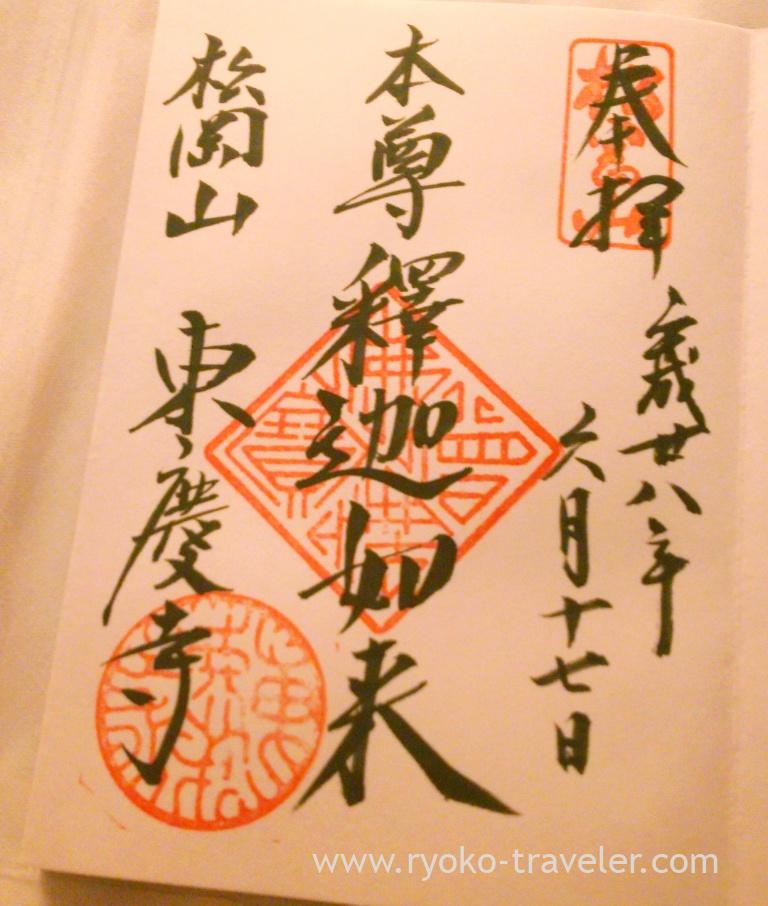 奉拝
平成廿八年
六月十七日
本尊 釋迦如来
松岡山 東慶寺
www.ryoko-traveler.com